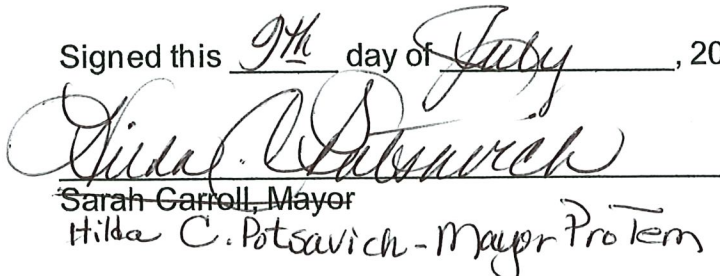 Signed this 9th day of July, 20
Hilda C Potsavich
Sarah Carroll, Mayor
Hilda C. Potsavich - Mayor Pro Tem